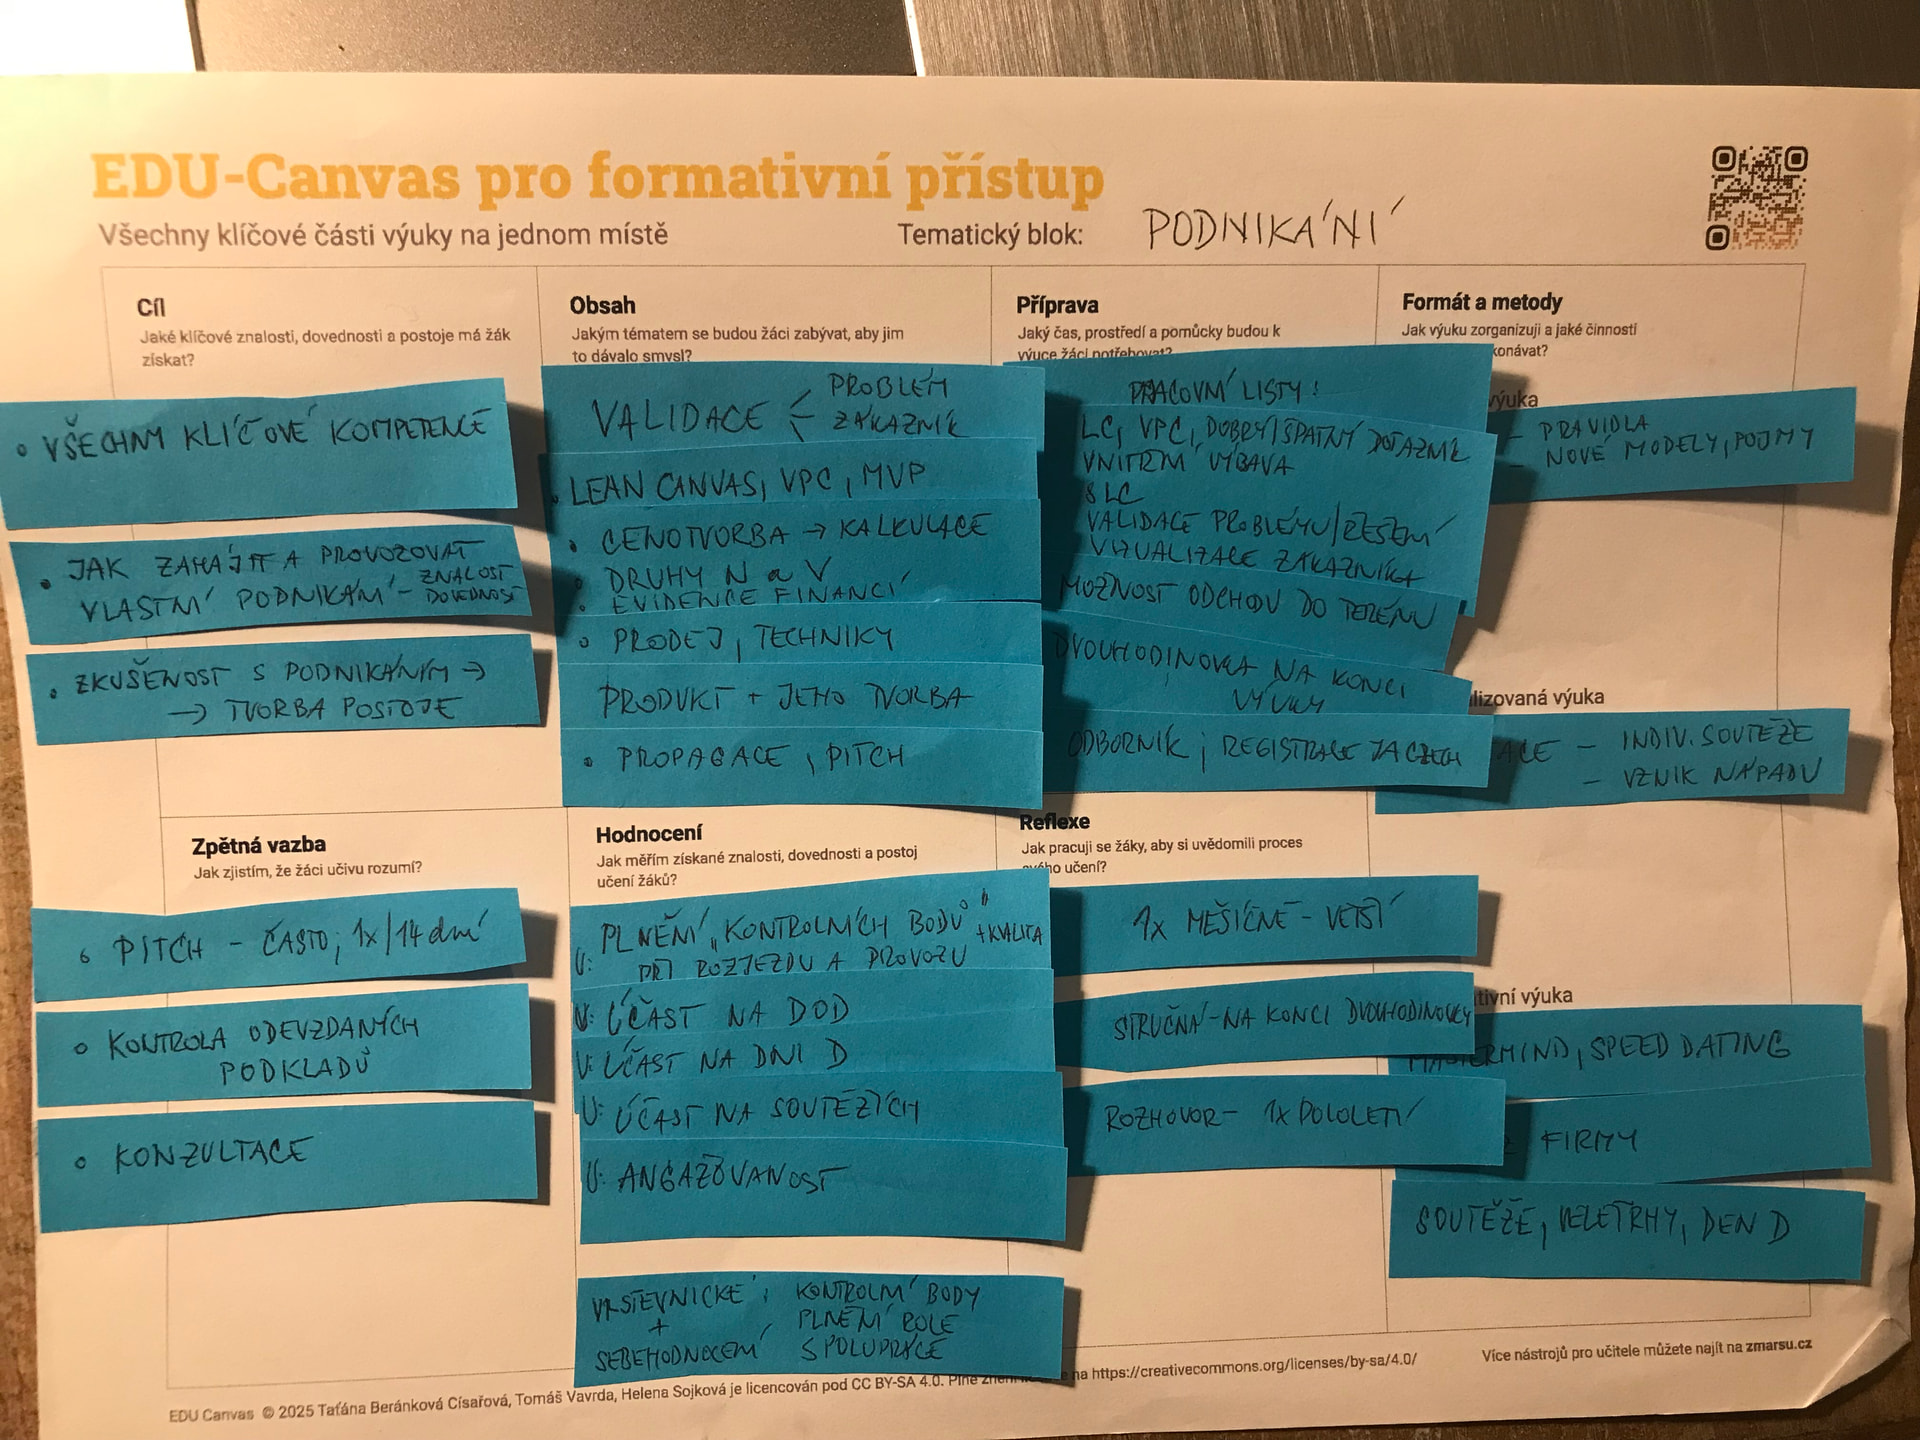 EDU-Canvas pro formativní přístup
Všechny klíčové části výuky na jednom místě
Tematický blok: PODNIKÁNÍ
Cíl
Jaké klíčové znalosti, dovednosti a postoje má žák
získat?
VŠECHNY KLÍČOVÉ KOMPETENCE
JAK ZAHÁJIT A PROVOZOVAT
VLASTNÍ PODNIKÁNÍ - ZNALOST
DOVEDNOST
ZKUŠENOST S PODNIKÁNÍM →
→ TVORBA POSTOJE
Obsah
Jakým tématem se budou žáci zabývat, aby jim
to dávalo smysl?
VALIDACE < PROBLÉM
ZÁKAZNÍK
LEAN CANVAS, VPC, MVP
CENOTVORBA → KALKULACE
DRUHY N a V
EVIDENCE FINANCÍ
PRODEJ, TECHNIKY
PRODUKT + JEHO TVORBA
PROPAGACE, PITCH
Příprava
Jaký čas, prostředí a pomůcky budou k
výuce žáci potřebovat?
PRACOVNÍ LISTY:
LC, VPC, DOBRÝ/ŠPATNÝ DOTAZNÍK
VNITŘNÍ VÝBAVA
SLC
VALIDACE PROBLÉMU/ŘEŠENÍ
VIZUALIZACE ZÁKAZNÍKA
MOŽNOST ODCHODU DO TERÉNU
DVOUHODINOVKA NA KONCI
VÝUKY
ODBORNÍK; REGISTRACE JA CZECH
Formát a metody
Jak výuku zorganizuji a jaké činnosti
konávat?
výuka
- PRAVIDLA
- NOVÉ MODELY, POJMY
lizovaná výuka
ACE - INDIV. SOUTĚŽE
- VZNIK NÁPADU
tivní výuka
MASTERMIND, SPEED DATING
FIRMY
SOUTĚŽE, VELETRHY, DEN D
Zpětná vazba
Jak zjistím, že žáci učivu rozumí?
PITCH - ČASTO; 1x/14 dní
KONTROLA ODEVZDANÝCH
PODKLADŮ
KONZULTACE
Hodnocení
Jak měřím získané znalosti, dovednosti a postoj
učení žáků?
U: PLNĚNÍ „KONTROLNÍCH BODŮ" + KVALITA
PŘI ROZJEZDU A PROVOZU
U: ÚČAST NA DOD
U: ÚČAST NA DNI D
U: ÚČAST NA SOUTĚŽÍCH
U: ANGAŽOVANOST
VRSTEVNICKÉ: KONTROLNÍ BODY
+ PLNĚNÍ ROLE
SEBEHODNOCENÍ SPOLUPRÁCE
Reflexe
Jak pracuji se žáky, aby si uvědomili proces
svého učení?
1x MĚSÍČNĚ - VĚTŠÍ
STRUČNÁ - NA KONCI DVOUHODINOVKY
ROZHOVOR - 1x POLOLETÍ
EDU Canvas © 2025 Taťána Beránková Císařová, Tomáš Vavrda, Helena Sojková je licencován pod CC BY-SA 4.0. Plné na https://creativecommons.org/licenses/by-sa/4.0/
Více nástrojů pro učitele můžete najít na zmarsu.cz